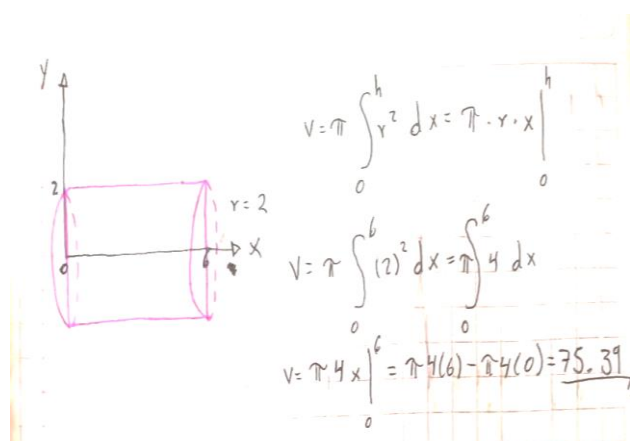 y
2
r=2
0
6
x
V=π ∫₀ʰ r² dx = π·r·x |₀ʰ
V=π ∫₀⁶ (2)² dx = π ∫₀⁶ 4 dx
V=π4x |₀⁶ = π4(6)-π4(0)=75.39